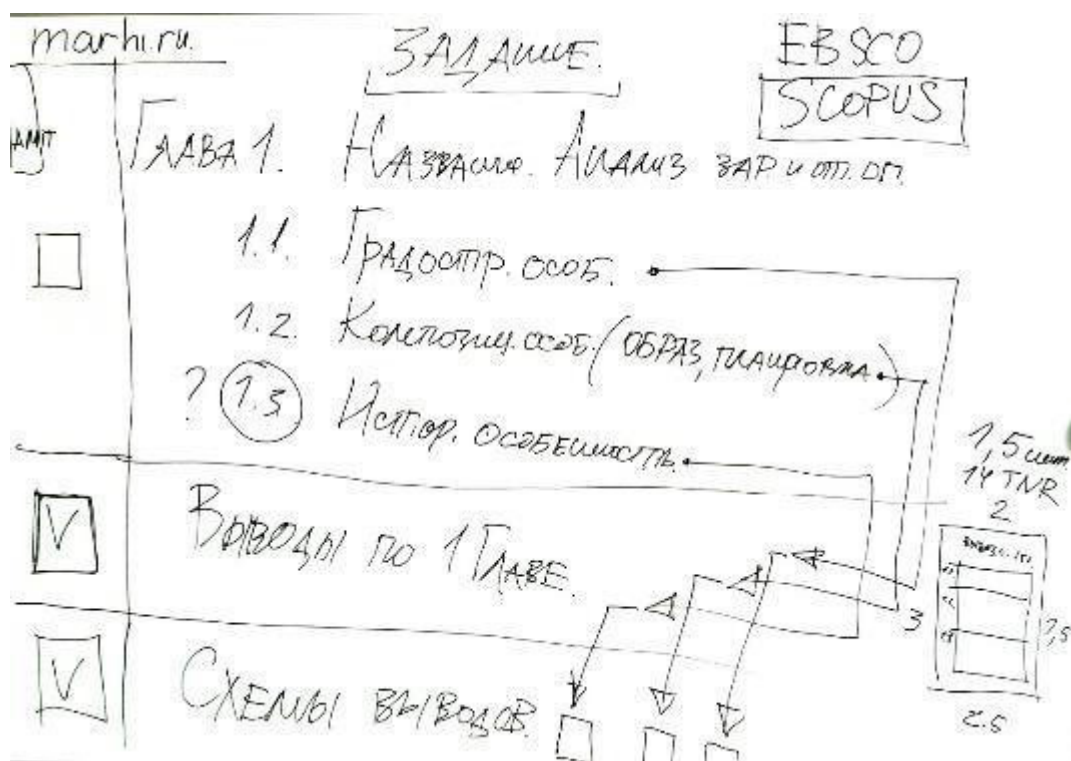 marhi.ru.
ЗАДАНИЕ.
EBSCO
SCOPUS
ГЛАВА 1. НАЗВАНИЕ. АНАЛИЗ ЗАР И ОТ. ОП.
1.1. ГРАДОСТР. ОСОБ.
1.2. КОМПОЗИЦ. ОСОБ. (ОБРАЗ, ПЛАНИРОВКА)
? 1.3 ИСТОР. ОСОБЕННОСТЬ.
1,5 инт.
14 TNR
2
V ВЫВОДЫ ПО 1 ГЛАВЕ.
3
2,5
V СХЕМЫ ВЫВОДОВ.